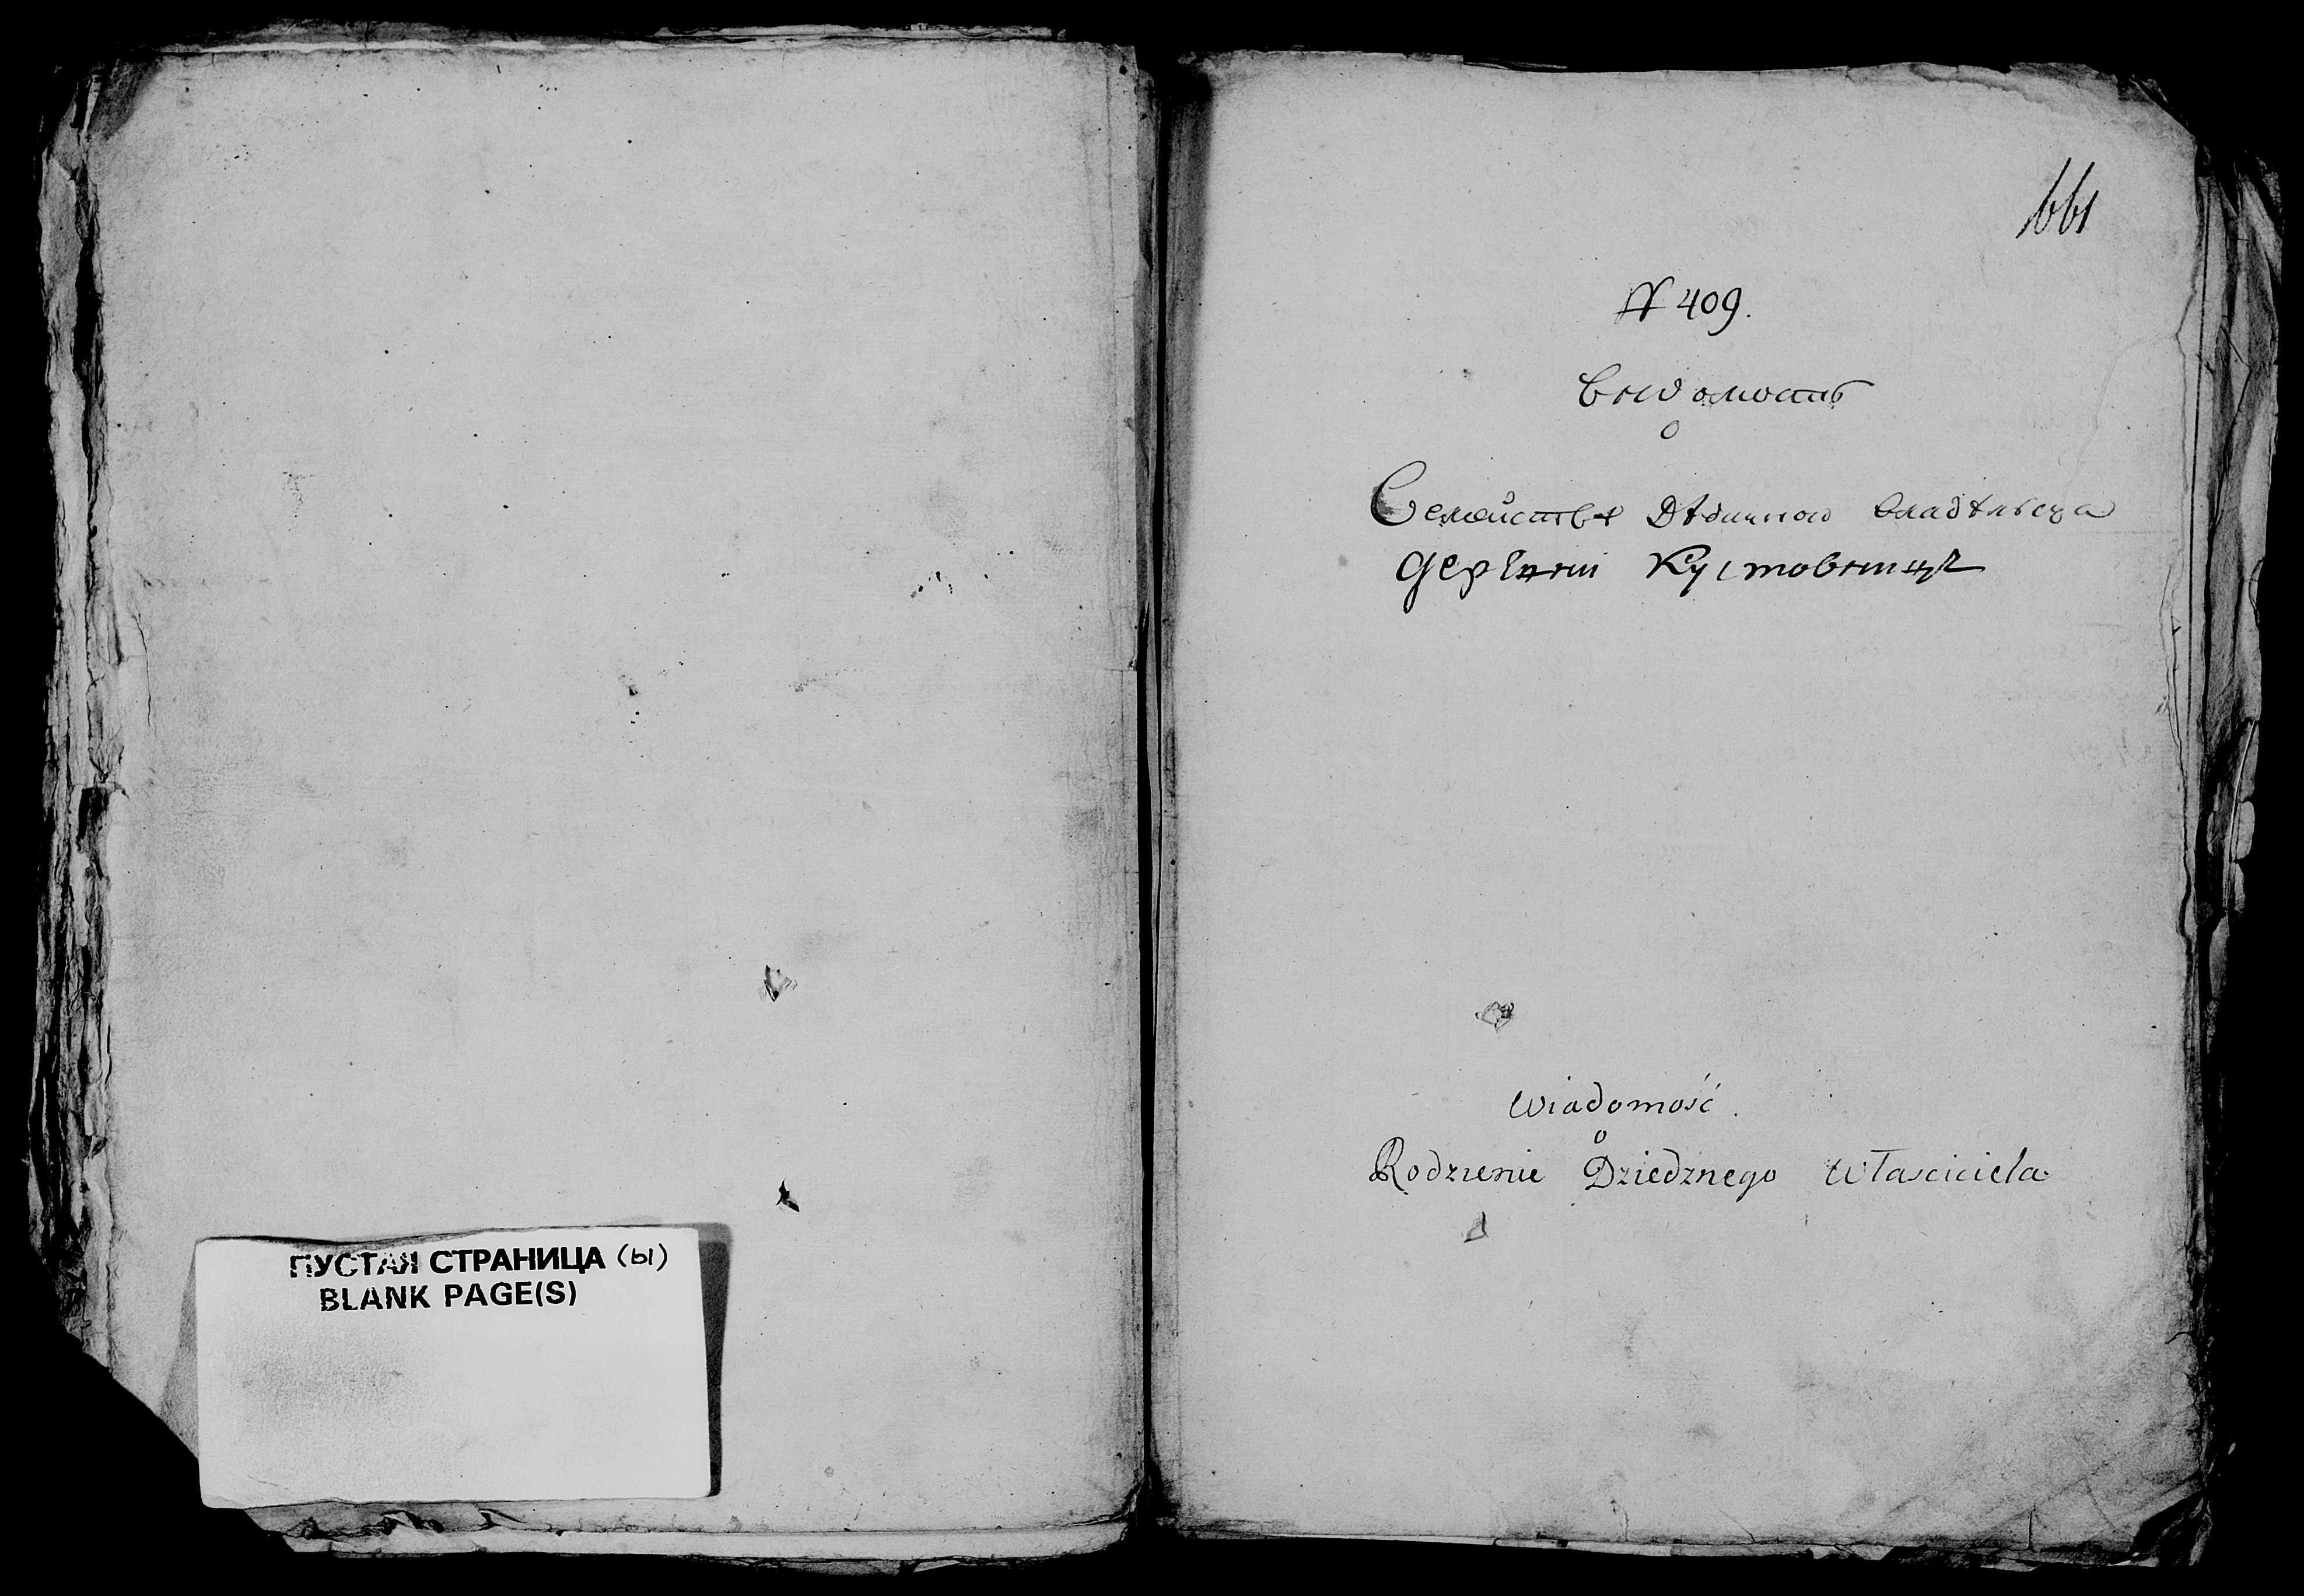 ПУСТАЯ СТРАНИЦА (ы)
BLANK PAGE(S)
661
N 409.
Выдомость
о
Семействѣ Дѣдичного Владѣльца
деревни Кустовницъ
Wiadomość.
o
Rodzienie Dziedznego Właściciela